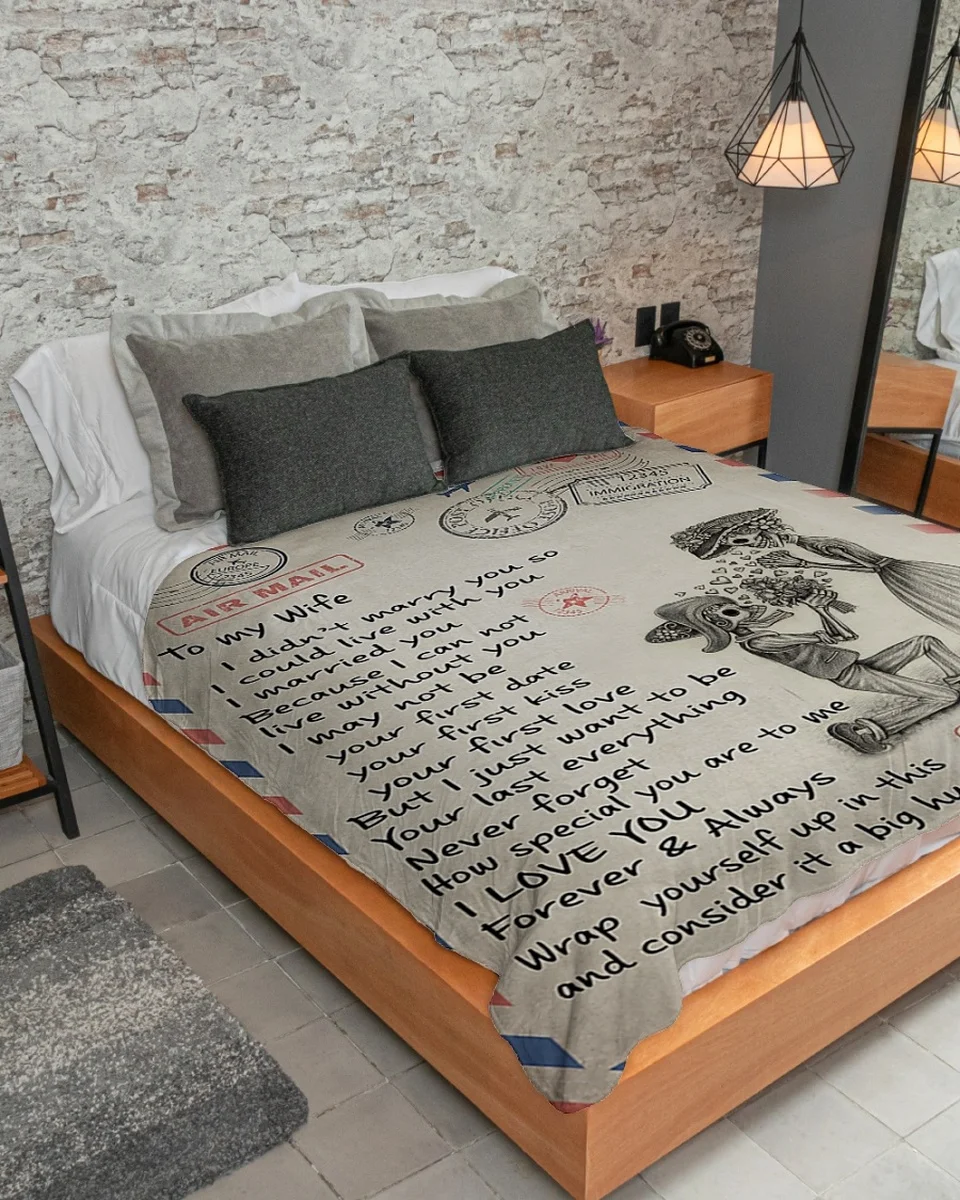 12345
IMMIGRATION
AIR MAIL
EUROPE
12345
AIR MAIL
To my Wife
I didn't marry you so
I could live with you
I married you
Because I can not
live without you
I may not be
your first date
your first kiss
your first love
But I just want to be
Your last everything
Never forget
How special you are to me
I LOVE YOU
Forever & Always
Wrap yourself up in this
and consider it a big hu